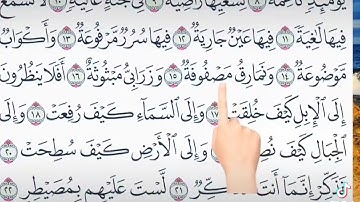 يَوْمَئِذٍ نَّاعِمَةٌ ٨ لِّسَعْيِهَا رَاضِيَةٌ ٩ فِي جَنَّةٍ عَالِيَةٍ ١٠ لَّا تَسْمَعُ
فِيهَا لَٰغِيَةً ١١ فِيهَا عَيْنٌ جَارِيَةٌ ١٢ فِيهَا سُرُرٌ مَّرْفُوعَةٌ ١٣ وَأَكْوَابٌ
مَّوْضُوعَةٌ ١٤ وَنَمَارِقُ مَصْفُوفَةٌ ١٥ وَزَرَابِيُّ مَبْثُوثَةٌ ١٦ أَفَلَا يَنظُرُونَ
إِلَى الْإِبِلِ كَيْفَ خُلِقَتْ ١٧ وَإِلَى السَّمَاءِ كَيْفَ رُفِعَتْ ١٨ وَإِلَى
الْجِبَالِ كَيْفَ وَإِلَى الْأَرْضِ كَيْفَ سُطِحَتْ ٢٠
فَذَكِّرْ إِنَّمَا أَنتَ ٢١ لَّسْتَ عَلَيْهِم بِمُصَيْطِرٍ ٢٢